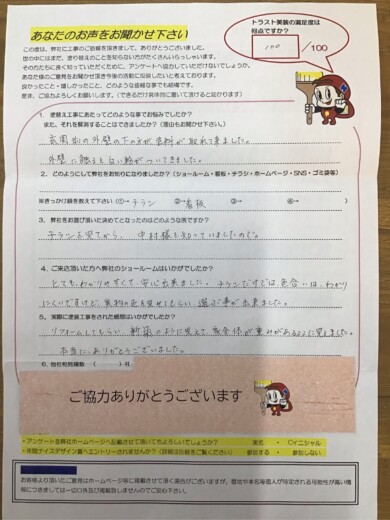 あなたのお声をお聞かせ下さい
トラスト美装の満足度は
何点ですか?
100 /100
この度は、弊社に工事のご依頼を頂きまして、ありがとうございました。
世の中にはまだ、塗り替えのことを知らない方がたくさんいらっしゃいます。
その方たちに良く知っていただくために、アンケートへ協力していただけないでしょうか。
あなた様のご意見をお聞かせ頂き今後の活動に役立したいと考えております。
良かったこと・嬉しかったこと、どのような些細な事でも結構です。
是非、ご協力よろしくお願いします。(できるだけ具体的に書いて頂けると助かります)
1. 塗替え工事にあたってどのような事でお悩みでしたか?
また、それを解消することはできましたか?(理由もお聞かせ下さい)
玄関前の外壁の下の方が塗料が取れて来ました。
外壁に触ると白い粉がついてきました。
2. どのようにして弊社をお知りになりましたか?(ショールーム・看板・チラシ・ホームページ・SNS・ゴミ袋等)
※きっかけ順を教えて下さい (①→ チラシ ②→ 看板 ③→ ④→ )
3. 弊社をお選び頂いた決めてとなったのはどのような所ですか?
チラシを見てから、中村様を知っていましたので。
4. ご来店頂いた方へ弊社のショールームはいかがでしたか?
とてもわかりやすくて、安心出来ました。チラシだけでは、色合いは、わかり
にくいですけど、実物の色を見せてもらい、選ぶ事が出来ました。
5. 実際に塗装工事をされた感想はいかがでしたか?
リフォームしてもらい、新築のように見えて、家全体が重みがあるように見えました。
本当に、ありがとうございました。
6. 他社相見積数 ( )社
ご協力ありがとうございます
・アンケートを弊社ホームページへ記載させて頂いてもよろしいでしょうか? 実名 ・ ○イニシャル
・年間ナイスデザイン賞へエントリーされませんか?(詳細は台紙をご覧ください) 参加する ・ 参加しない
お客様より頂いたご意見はホームページ等に掲載させて頂く場合がございますが、個功や本名等個人が特定される可能性が高い情
報につきましては一切公表及び掲載致しませんのでご安心下さい。